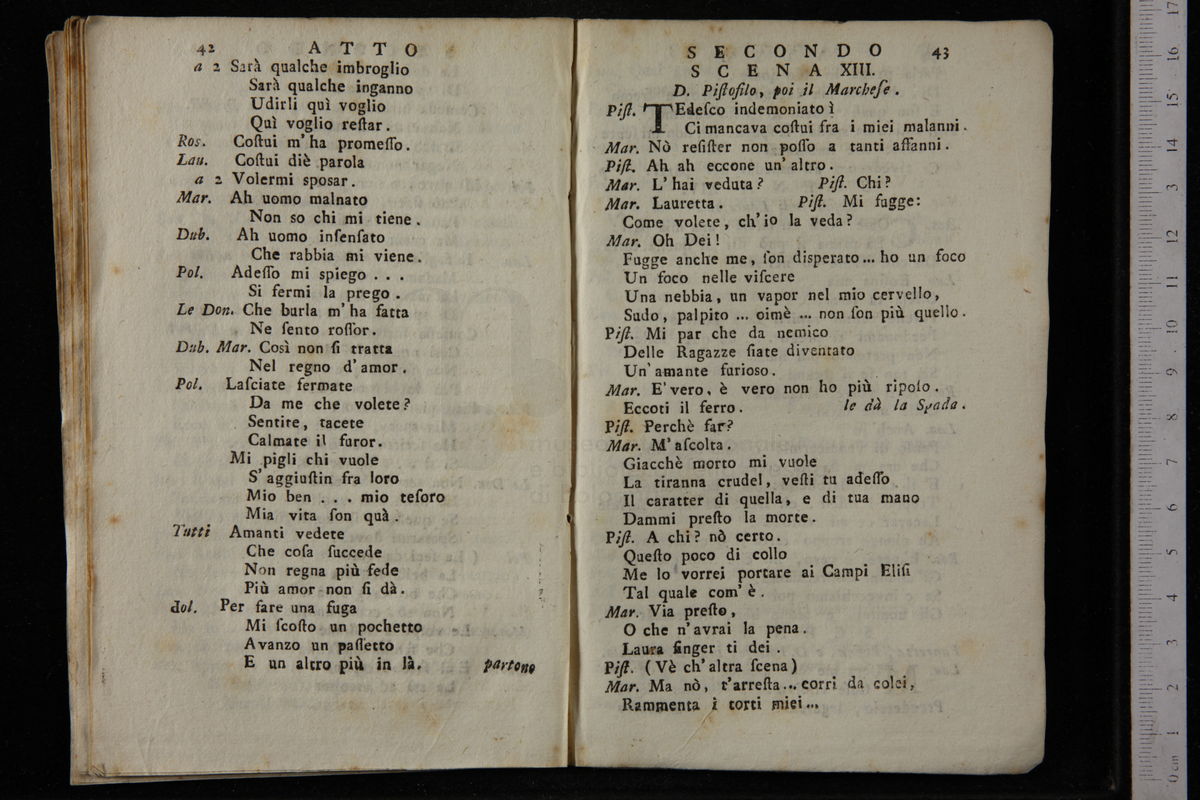 42 ATTO
a 2 Sarà qualche imbroglio
Sarà qualche inganno
Udirli quì voglio
Quì voglio reſtar.
Ros. Coſtui m'ha promeſſo.
Lau. Coſtui diè parola
a 2 Volermi sposar.
Mar. Ah uomo malnato
Non so chi mi tiene.
Dub. Ah uomo inſenſato
Che rabbia mi viene.
Pol. Adeſſo mi spiego . . .
Si fermi la prego.
Le Don. Che burla m'ha fatta
Ne ſento roſſor.
Dub. Mar. Così non ſi tratta
Nel regno d'amor.
Pol. Laſciate fermate
Da me che volete?
Sentite, tacete
Calmate il furor.
Mi pigli chi vuole
S'aggiuſtin fra loro
Mio ben . . . mio teſoro
Mia vita ſon quà.
Tutti Amanti vedete
Che coſa ſuccede
Non regna più fede
Più amor non ſi dà.
dol. Per fare una fuga
Mi ſcoſto un pochetto
Avanzo un paſſetto
E un altro più in là. partono
SECONDO 43
SCENA XIII.
D. Piſtofilo, poi il Marcheſe.
Piſt. TEdeſco indemoniato ì
Ci mancava coſtui fra i miei malanni.
Mar. Nò reſiſter non poſſo a tanti affanni.
Piſt. Ah ah eccone un'altro.
Mar. L'hai veduta? Piſt. Chi?
Mar. Lauretta. Piſt. Mi fugge:
Come volete, ch'io la veda?
Mar. Oh Dei!
Fugge anche me, ſon disperato... ho un foco
Un foco nelle viſcere
Una nebbia, un vapor nel mio cervello,
Sudo, palpito ... oimè ... non ſon più quello.
Piſt. Mi par che da nemico
Delle Ragazze ſiate diventato
Un'amante furioso.
Mar. E'vero, è vero non ho più ripoſo.
Eccoti il ferro. le dà la Spada.
Piſt. Perchè far?
Mar. M'aſcolta.
Giacchè morto mi vuole
La tiranna crudel, veſti tu adeſſo
Il caratter di quella, e di tua mano
Dammi preſto la morte.
Piſt. A chi? nò certo.
Queſto poco di collo
Me lo vorrei portare ai Campi Eliſi
Tal quale com'è.
Mar. Via preſto,
O che n'avrai la pena.
Laura finger ti dei.
Piſt. (Vè ch'altra ſcena)
Mar. Ma nò, t'arreſta... corri da colei,
Rammenta i torti miei...